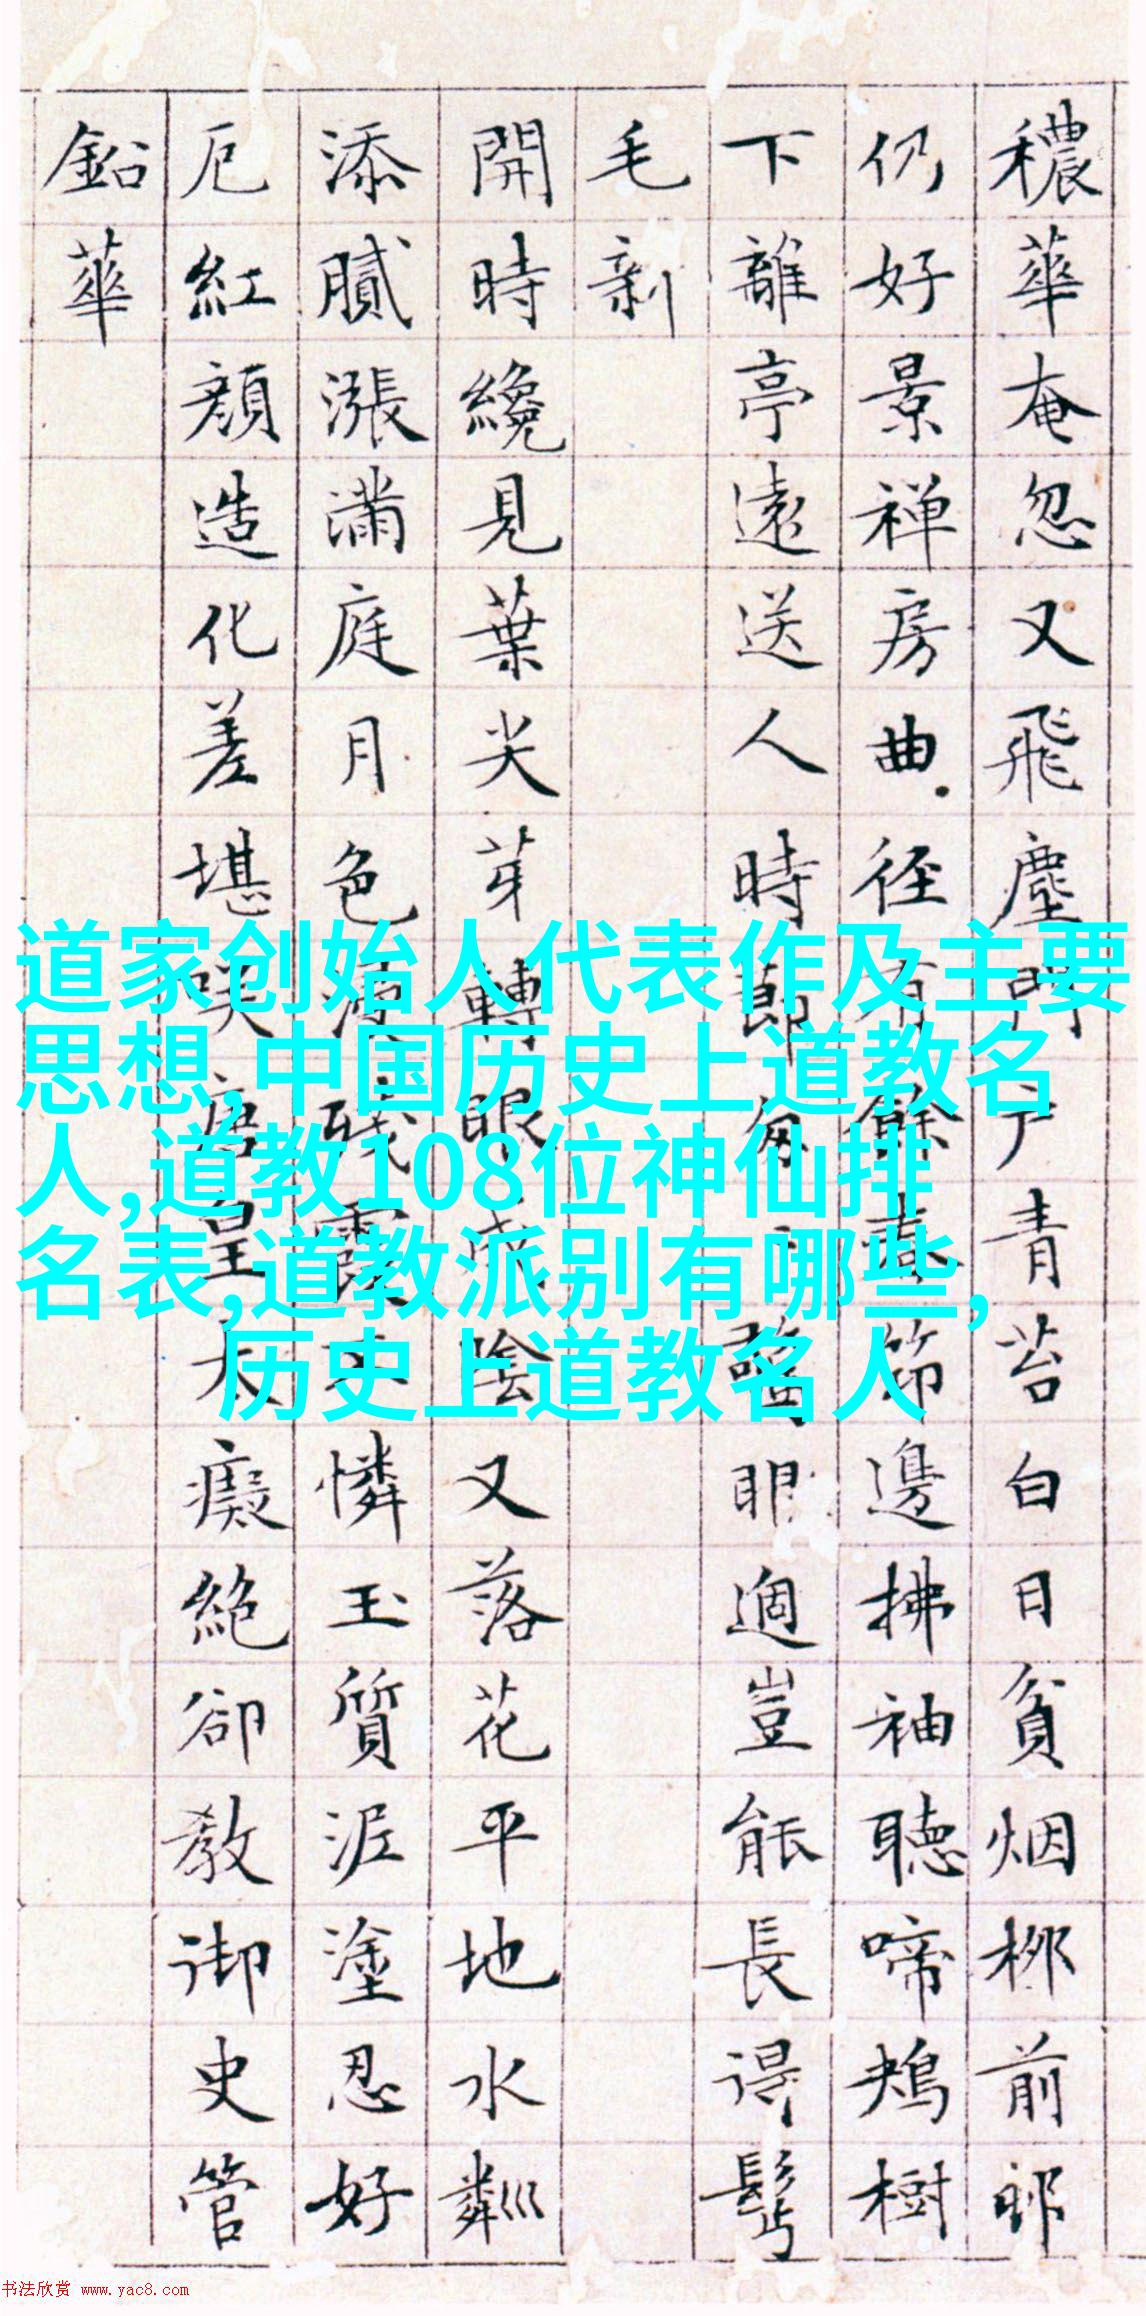 穠華奄忽又飛塵門户青苔白日貧烟栁前邨
仍好景禅房曲径有餘春笻邊拂袖聽啼鴂樹
下離亭遠送人時節匆驚眼過豈能長得鬢
毛新
開時纔見葉尖芽轉眼成陰又落花平地水粼
添膩漲滿庭月色殘霞憐玉質泥塗忍好
紅顔造化差堪笑唐皇太癡絕卻教御史管
鉛華
道家创始人代表作及主要
思想,中国历史上道教名
人,道教108位神仙排
名表,道教派别有哪些,
历史上道教名人
书法欣赏 www.yac8.com